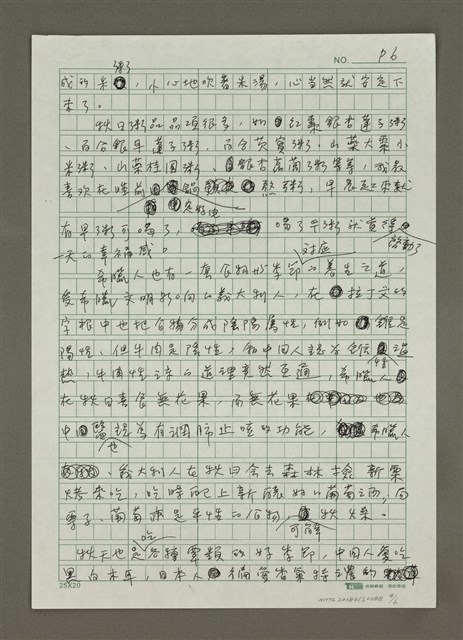 NO. P6
成的米粥，小心地吹着米湯，心當然就安定下
來了。
秋日粥品品項很多，如紅棗銀杏蓮子粥
、百合銀耳蓮子粥、百合芡實粥、山藥大棗小
米粥、山藥桂圓粥、銀杏粥等等，我最
喜欢在睡前熬粥，早晨起來就
有早粥可喝了，喝了早粥就啟動了
一天的幸福感。
希臘人也有一套食物對應季節的養生之道，
受希臘文明影响的義大利人，在拉丁文的
字根中也把食物分成陰陽屬性，例如雞是
陽性，但牛肉是陰性，和中國人說
熱，牛肉性涼的道理竟然互通，希臘人
在秋日喜食無花果，而無花果
中醫認為有潤肺止咳的功能，希臘人
也
、義大利人在秋日會去森林撿新栗
烤來吃，吃時配上新釀的葡萄酒，而
栗子、葡萄酒是平性的食物可解秋燥。
秋天也是吃各種蕈類的好季節，中國人愛吃
黑白木耳，日本人偏愛香蕈特濃的
25X20